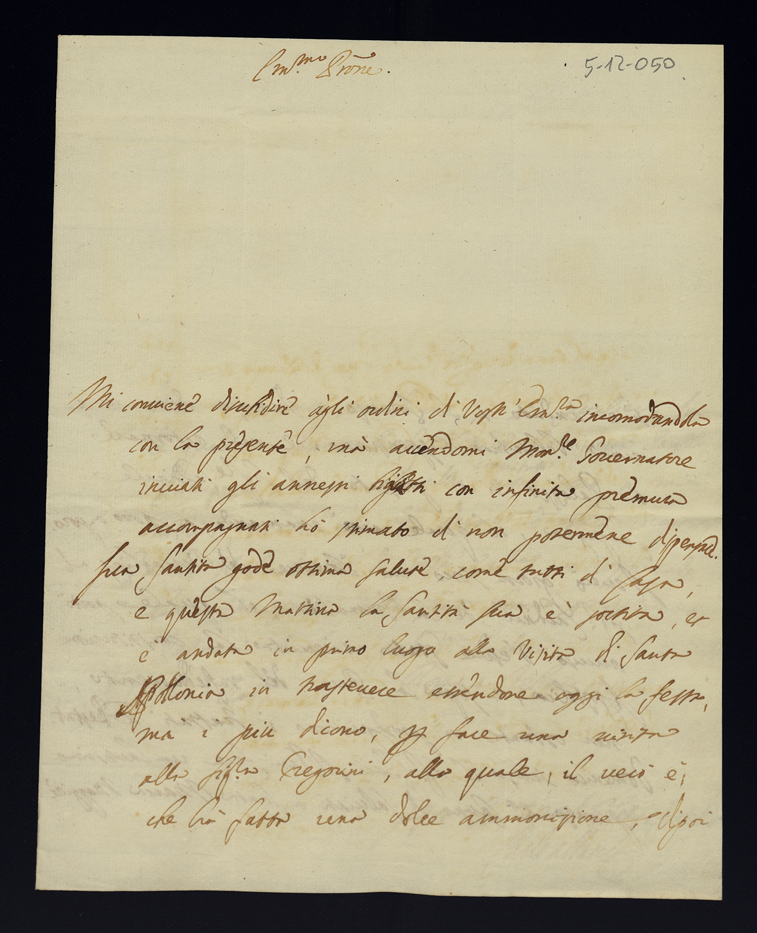 Em.mo Prōne.
5-12-050
Mi conviene disubidire agli ordini di Vost.' Em.za incomodandola
con la presente, mà avendomi Mon.re Governatore
inviati gli annessi con infinita premura
accompagnati hò stimato di non potermene dispensare.
Sua Santità gode ottima salute, come tutti di Casa,
e questa Mattina la Santità sua è sortita, et
è andata in primo luogo alla Visita di Santa
Apollonia in trastevere essendone oggi la festa,
ma i più dicono, p fare una visita
alla Sig.ra Gregorini, alla quale, il vero è,
che hà fatta una dolce ammonizione, e di poi